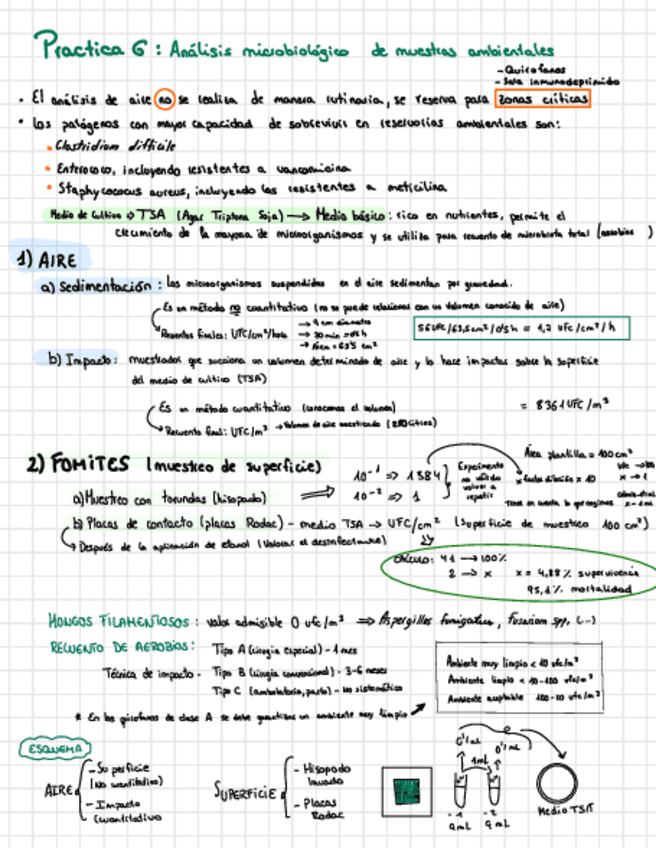 Practica 6: Análisis microbiológico de muestras ambientales
- Quirofanos
- Sala inmunodeprimido
• El análisis de aire no se realiza de manera rutinaria, se reserva para zonas críticas
• Los patógenos con mayor capacidad de sobrevivir en reservorios ambientales son:
• Clostridium difficile
• Enterococo, incluyendo resistentes a vancomicina
• Staphycococus aureus, incluyendo los resistentes a meticilina
Medio de cultivo → TSA (Agar Triptona Soja) → Medio básico: rico en nutrientes, permite el
crecimiento de la mayoria de microorganismos y se utiliza para recuento de microbiota total (aerobios)
1) AIRE
a) Sedimentación: los microorganismos suspendidos en el aire sedimentan por gravedad.
Es un método no cuantitativo (no se puede relacionar con un volumen conocido de aire)
Recuentos finales: UFC/cm²/hora
→ 9 cm diametro
→ 30 min = 0'5 h
→ Área = 63'5 cm²
56 UFC/63,5cm²/0'5h = 1,7 ufc/cm²/h
b) Impacto: muestreador que succiona un volumen determinado de aire y lo hace impactar sobre la superficie
del medio de cultivo (TSA)
Es un método cuantitativo (conocemos el volumen)
= 8361 UFC/m³
Recuento final: UFC/m³ → Volumen de aire muestreado
2) FOMITES (muestreo de superficie)
Área plantilla = 100 cm²
a) Muestreo con torundas (hisopado)
10⁻¹ => 1384
10⁻² => 1
Experimento no válido volver a repetir
x factor dilución x 10
b) Placas de contacto (placas Rodac) - medio TSA → UFC/cm² (superficie de muestreo 100 cm²)
Después de la aplicación de etanol (Valorar el desinfectante)
Cálculo: 41 → 100%
2 → x x = 4,88% supervivencia
95,1% mortalidad
HONGOS FILAMENTOSOS: valor admisible 0 ufc/m³ => Aspergillus fumigatus, Fusarium spp. (...)
RECUENTO DE AEROBIOS: Tipo A (cirugía especial) - 1 mes
Técnica de impacto - Tipo B (cirugía convencional) - 3-6 meses
Tipo C (ambulatoria, parto) - no sistemático
Ambiente muy limpio < 10 ufc/m³
Ambiente limpio < 10-100 ufc/m³
Ambiente aceptable 100-200 ufc/m³
* En los quirofanos de clase A se debe garantizar un ambiente muy limpio
ESQUEMA
AIRE
- Superficie
(No cuantitativo)
- Impacto
(cuantitativo
SUPERFICIE
- Hisopado
lavado
- Placas
Rodac
0'1 mL
0'1 mL
1 mL
-1
9 mL
-2
9 mL
Medio TSA